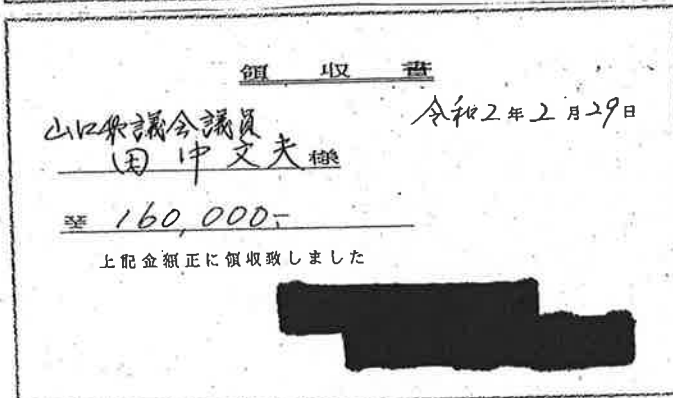 領収書
令和2年2月29日
山口県議会議員
田中文夫様
金 160,000-
上記金額正に領収致しました